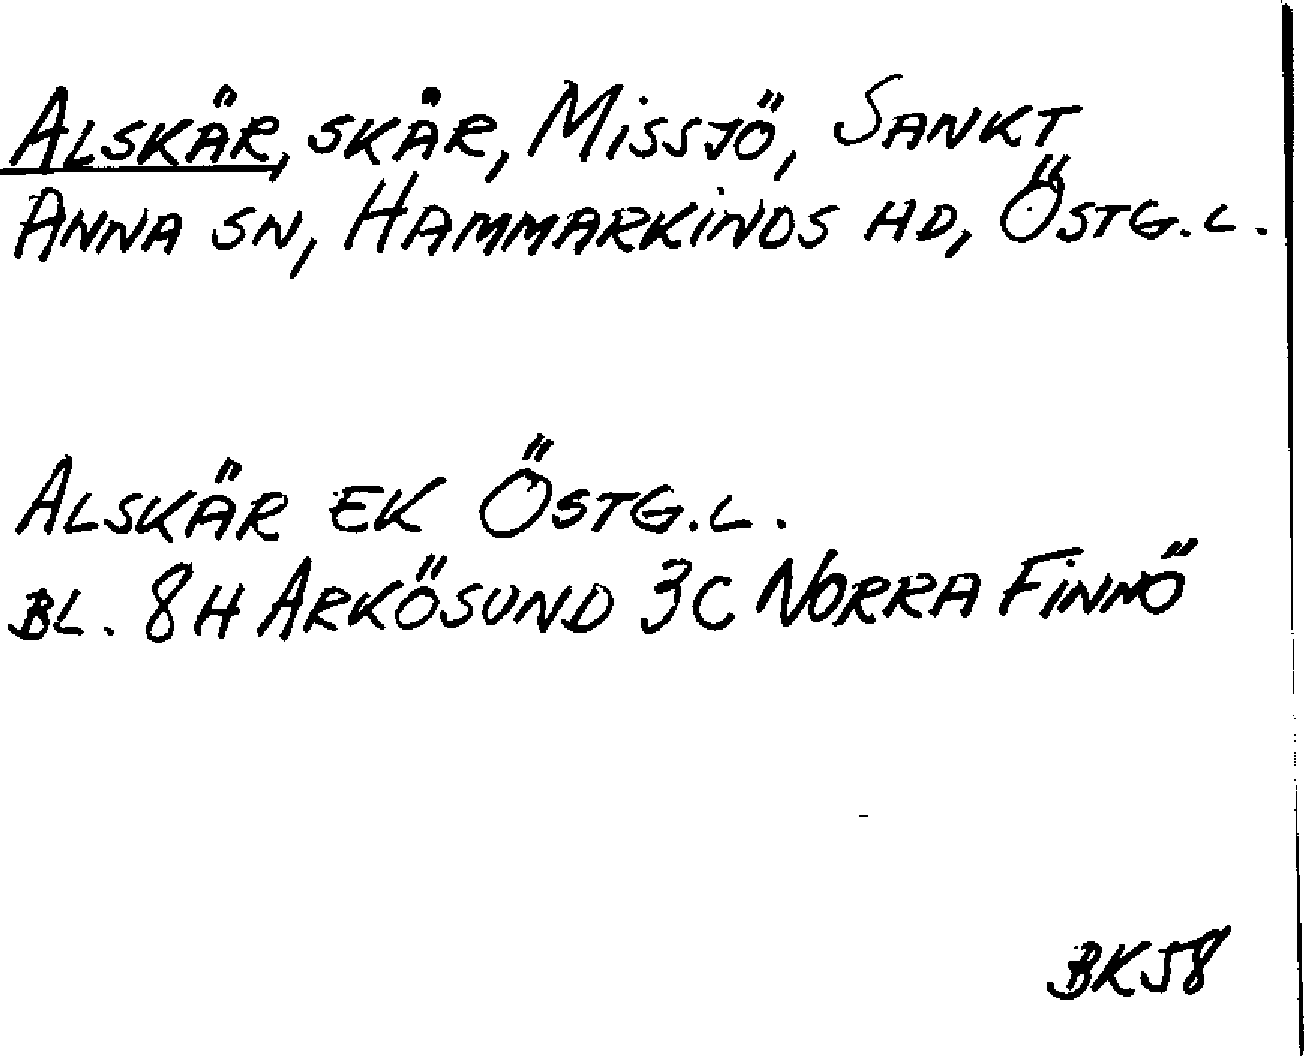 ALSKÄR, SKÄR, MISSJÖ, SANKT
ANNA SN, HAMMARKINDS HD, ÖSTG.L.
ALSKÄR EK ÖSTG.L.
BL. 8H ARKÖSUND 3C NORRA FINNÖ
BK58